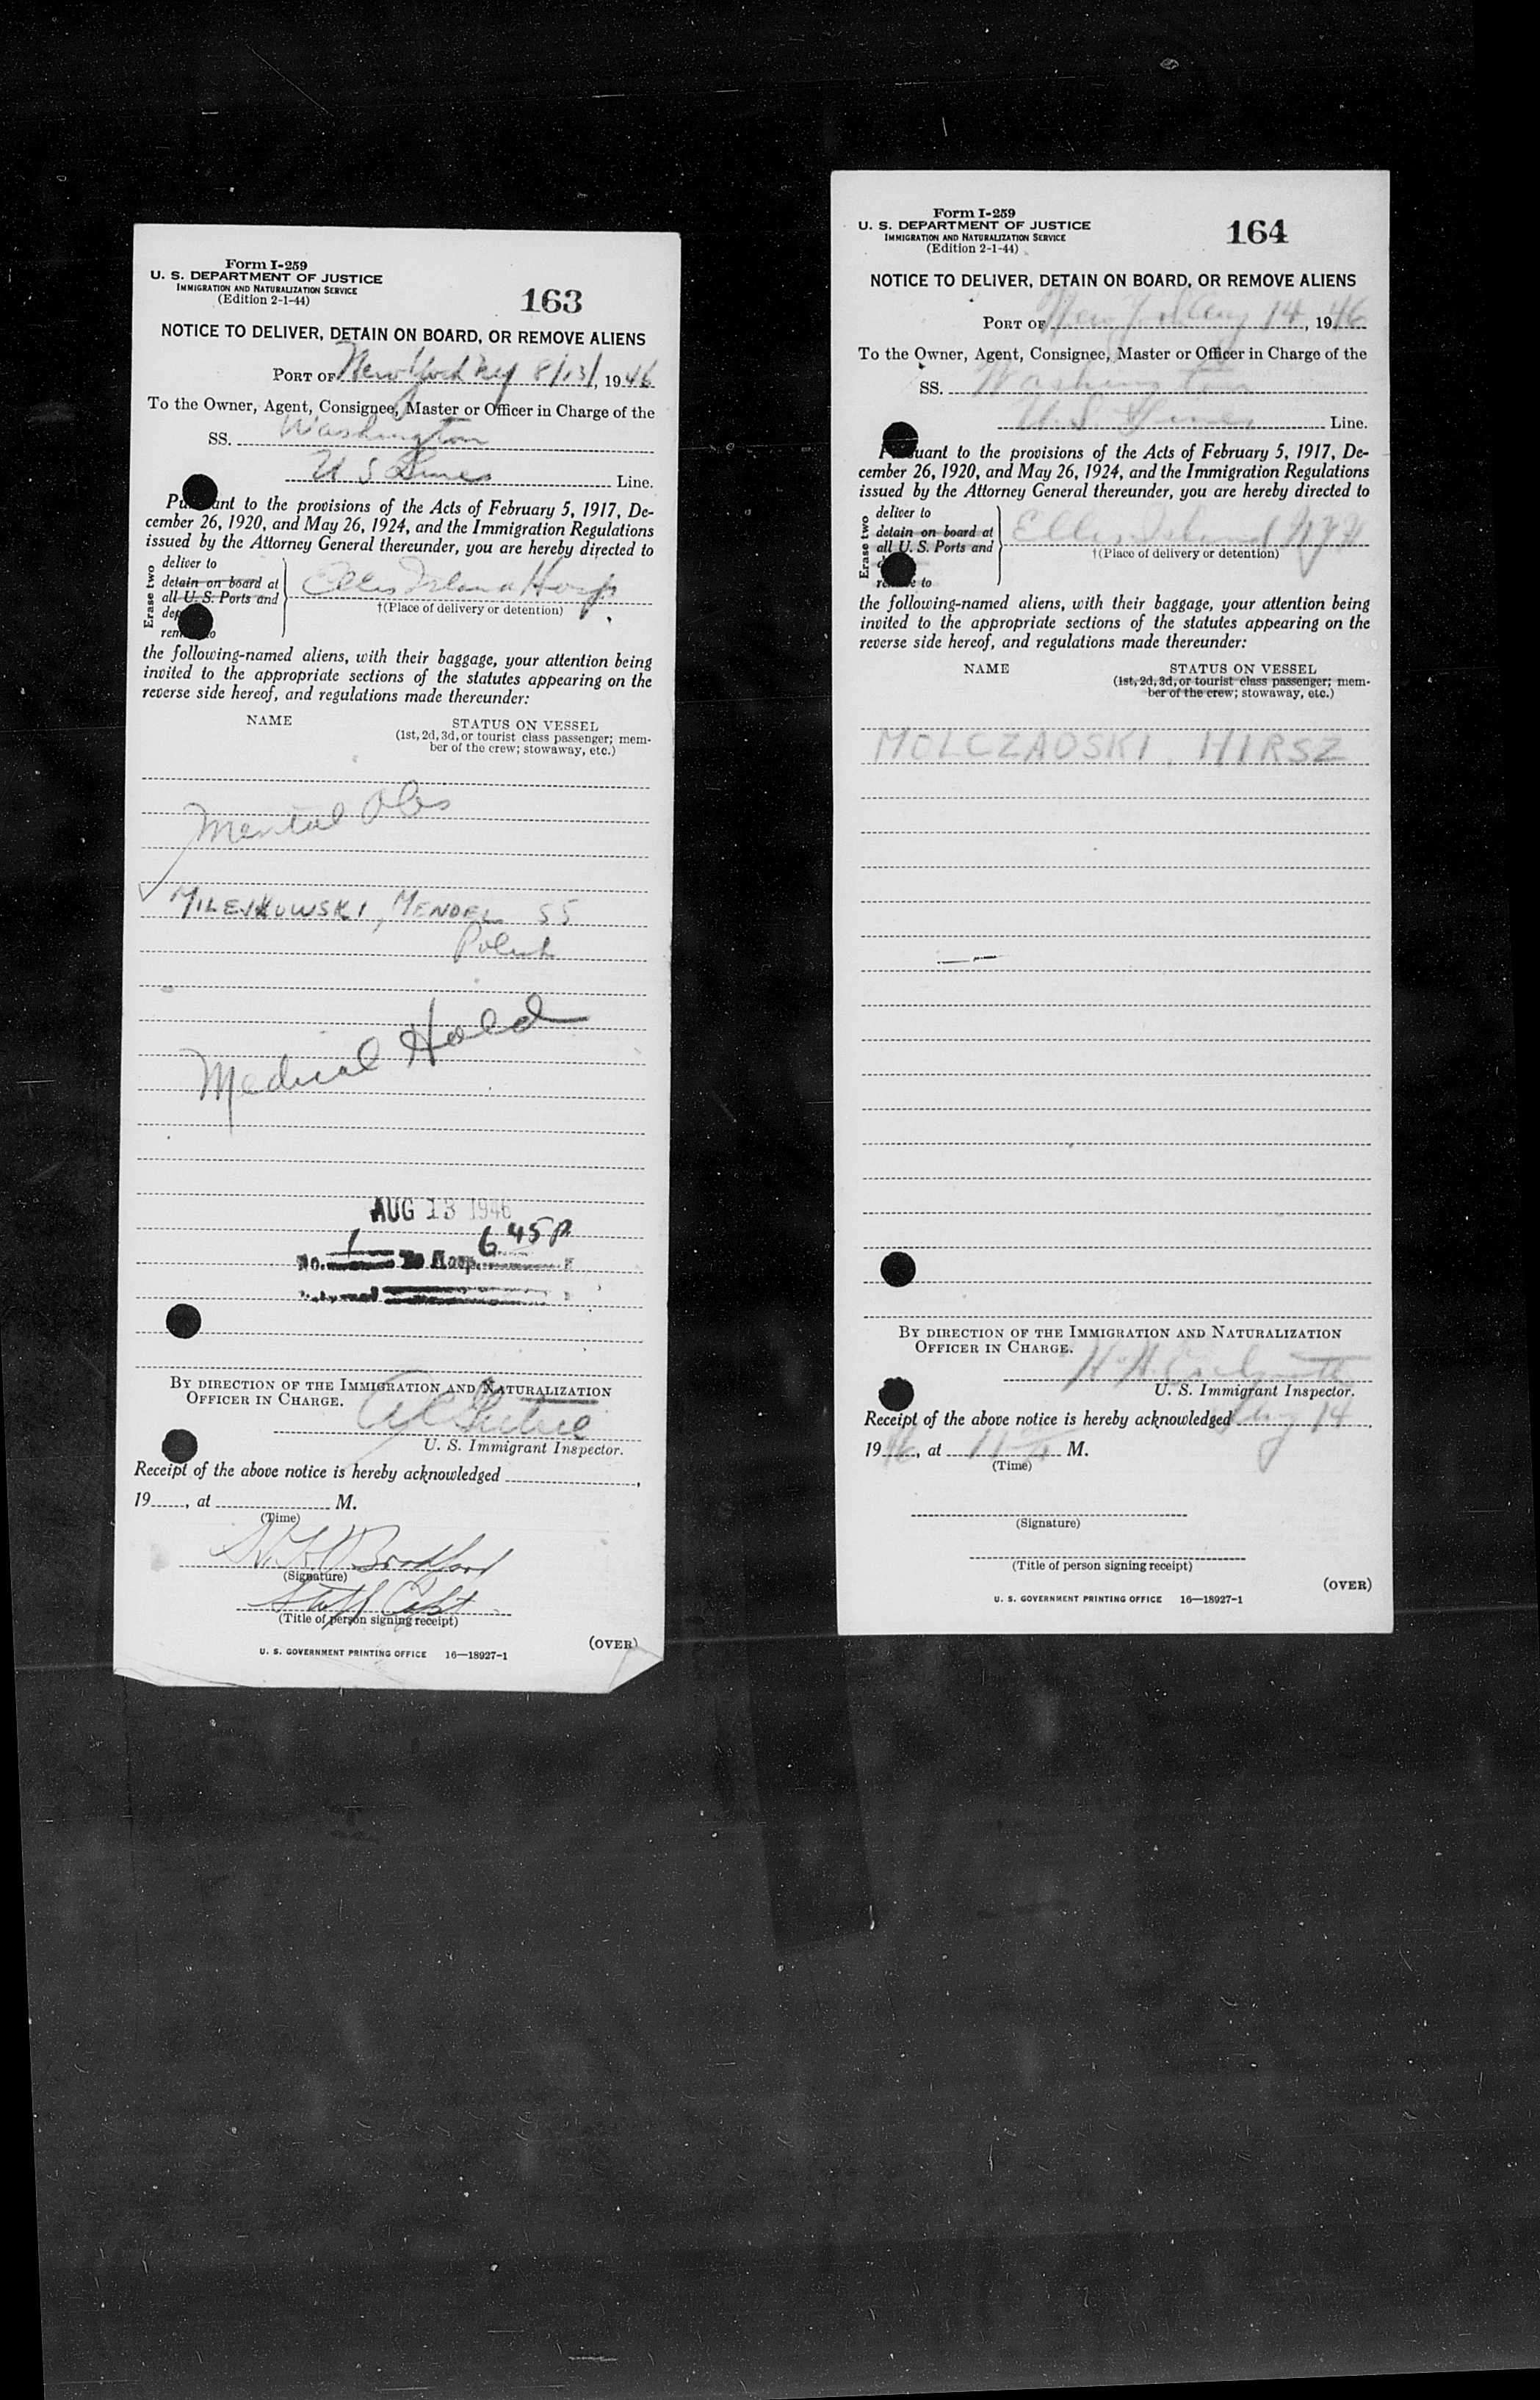 Form I-259
U. S. DEPARTMENT OF JUSTICE
IMMIGRATION AND NATURALIZATION SERVICE
(Edition 2-1-44)
163
NOTICE TO DELIVER, DETAIN ON BOARD, OR REMOVE ALIENS
PORT OF New York NY 8/13/, 1946
To the Owner, Agent, Consignee, Master or Officer in Charge of the
SS. Washington
U S Lines Line.
Pursuant to the provisions of the Acts of February 5, 1917, De-
cember 26, 1920, and May 26, 1924, and the Immigration Regulations
issued by the Attorney General thereunder, you are hereby directed to
Erase two
deliver to
detain on board at
all U. S. Ports and
Ellis Island Hosp
†(Place of delivery or detention)
the following-named aliens, with their baggage, your attention being
invited to the appropriate sections of the statutes appearing on the
reverse side hereof, and regulations made thereunder:
NAME
STATUS ON VESSEL
(1st, 2d, 3d, or tourist class passenger; mem-
ber of the crew; stowaway, etc.)
Mental Obs
MILEJKOWSKI, MENDEL 55
Polish
Medical Hold
AUG 13 1946
No. 1 To Hosp. 6 45 P
BY DIRECTION OF THE IMMIGRATION AND NATURALIZATION
OFFICER IN CHARGE.
U. S. Immigrant Inspector.
Receipt of the above notice is hereby acknowledged
19, at M.
(Time)
Bradford
(Signature)
Staff Capt
(Title of person signing receipt)
(OVER)
U. S. GOVERNMENT PRINTING OFFICE 16—18927-1
Form I-259
U. S. DEPARTMENT OF JUSTICE
IMMIGRATION AND NATURALIZATION SERVICE
(Edition 2-1-44)
164
NOTICE TO DELIVER, DETAIN ON BOARD, OR REMOVE ALIENS
PORT OF New York Aug 14, 1946
To the Owner, Agent, Consignee, Master or Officer in Charge of the
SS. Washington
U.S. Lines Line.
Pursuant to the provisions of the Acts of February 5, 1917, De-
cember 26, 1920, and May 26, 1924, and the Immigration Regulations
issued by the Attorney General thereunder, you are hereby directed to
Erase two
deliver to
detain on board at
all U. S. Ports and
remove to
Ellis Island NYH
†(Place of delivery or detention)
the following-named aliens, with their baggage, your attention being
invited to the appropriate sections of the statutes appearing on the
reverse side hereof, and regulations made thereunder:
NAME
STATUS ON VESSEL
(1st, 2d, 3d, or tourist class passenger; mem-
ber of the crew; stowaway, etc.)
MOLCZADSKI, HIRSZ
BY DIRECTION OF THE IMMIGRATION AND NATURALIZATION
OFFICER IN CHARGE.
U. S. Immigrant Inspector.
Receipt of the above notice is hereby acknowledged Aug 14,
1946, at 11 M.
(Time)
(Signature)
(Title of person signing receipt)
(OVER)
U. S. GOVERNMENT PRINTING OFFICE 16—18927-1